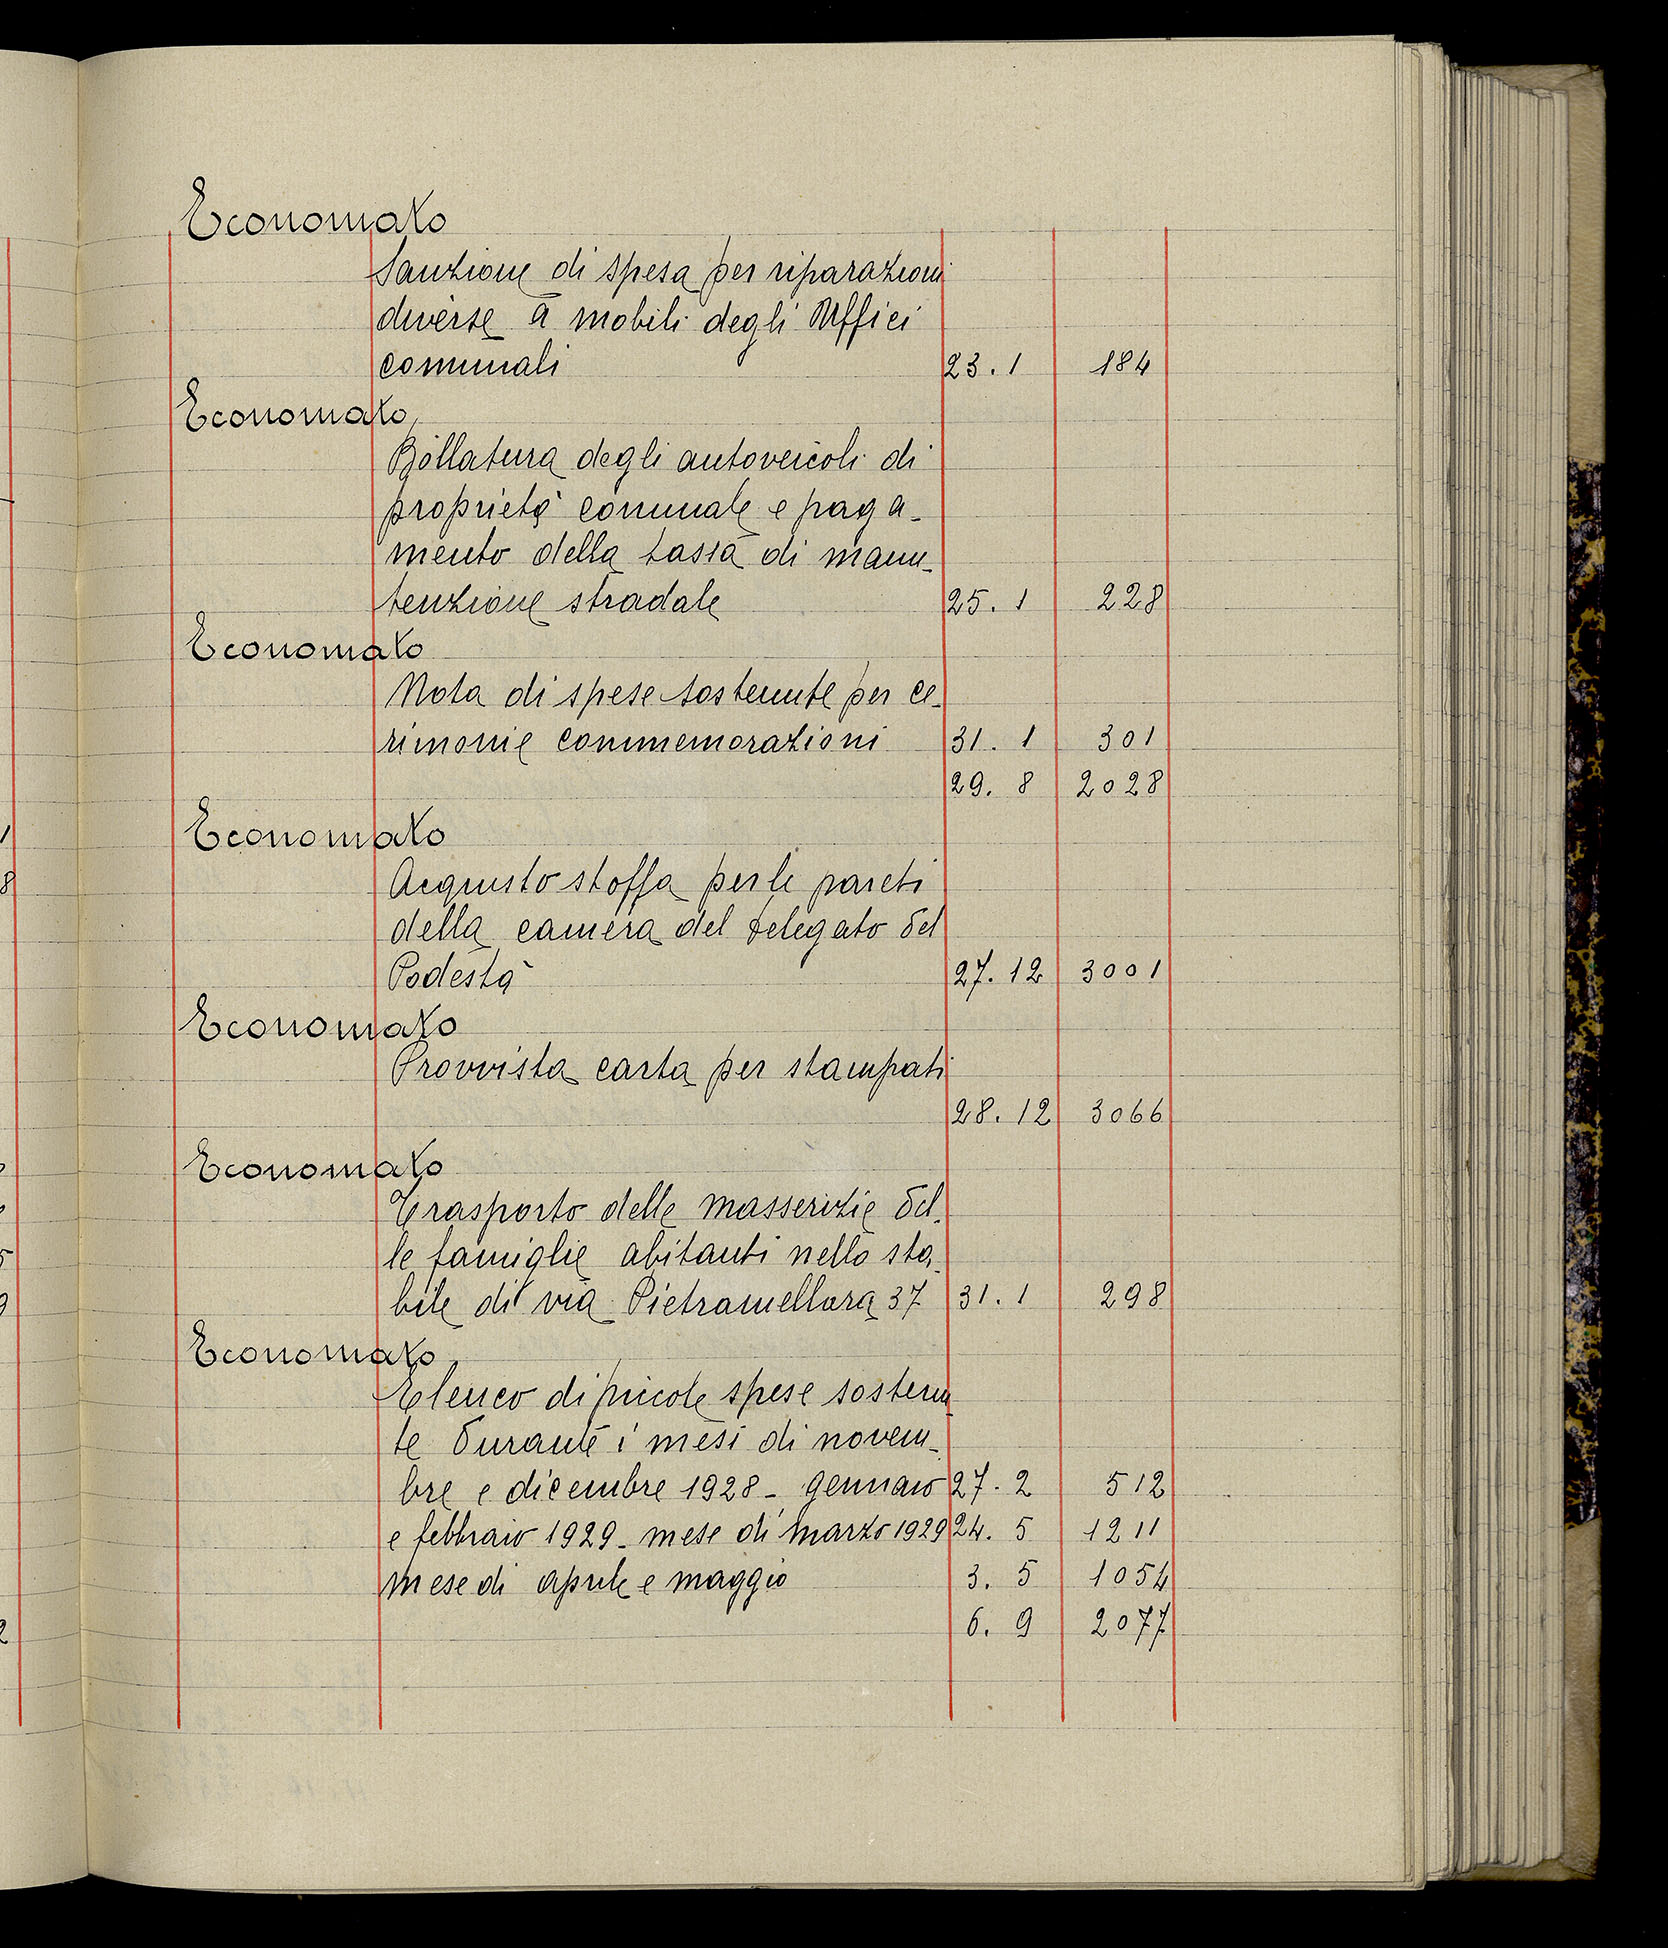 Economato
Sanzione di spesa per riparazioni
diverse a mobili degli Uffici
comunali 23. 1 184
Economato
Bollatura degli autoveicoli di
proprietà comunale e paga-
mento della tassa di manu-
tenzione stradale 25. 1 228
Economato
Nota di spese sostenute per ce-
rimonie commemorazioni 31. 1 301
29. 8 2028
Economato
Acquisto stoffa per le pareti
della camera del delegato del
Podestà 27. 12 3001
Economato
Provvista carta per stampati
28. 12 3066
Economato
Trasporto delle masserizie del-
le famiglie abitanti nello sta-
bile di via Pietramellara 37 31. 1 298
Economato
Elenco di piccole spese sostenu-
te durante i mesi di novem-
bre e dicembre 1928 - gennaio 27. 2 512
e febbraio 1929 - mese di marzo 1929 24. 5 1211
mese di aprile e maggio 3. 5 1054
6. 9 2077